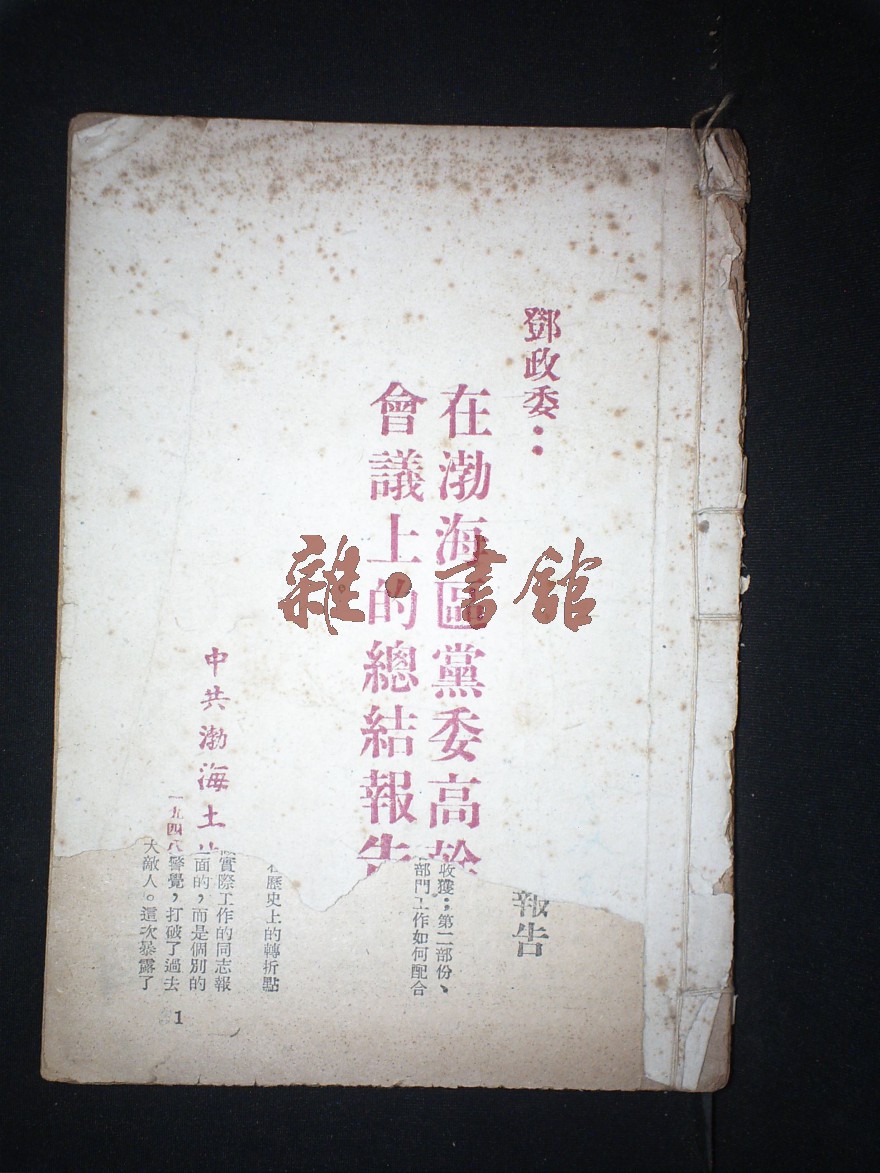 鄧政委：
在渤海區黨委高幹
會議上的總結報告
中共渤海土
一九四八
報告
收獲；第二部份、
部門工作如何配合
歷史上的轉折點
實際工作的同志報
面的，而是個別的
警覺，打破了過去
大敵人。這次暴露了
1
雜·書舘